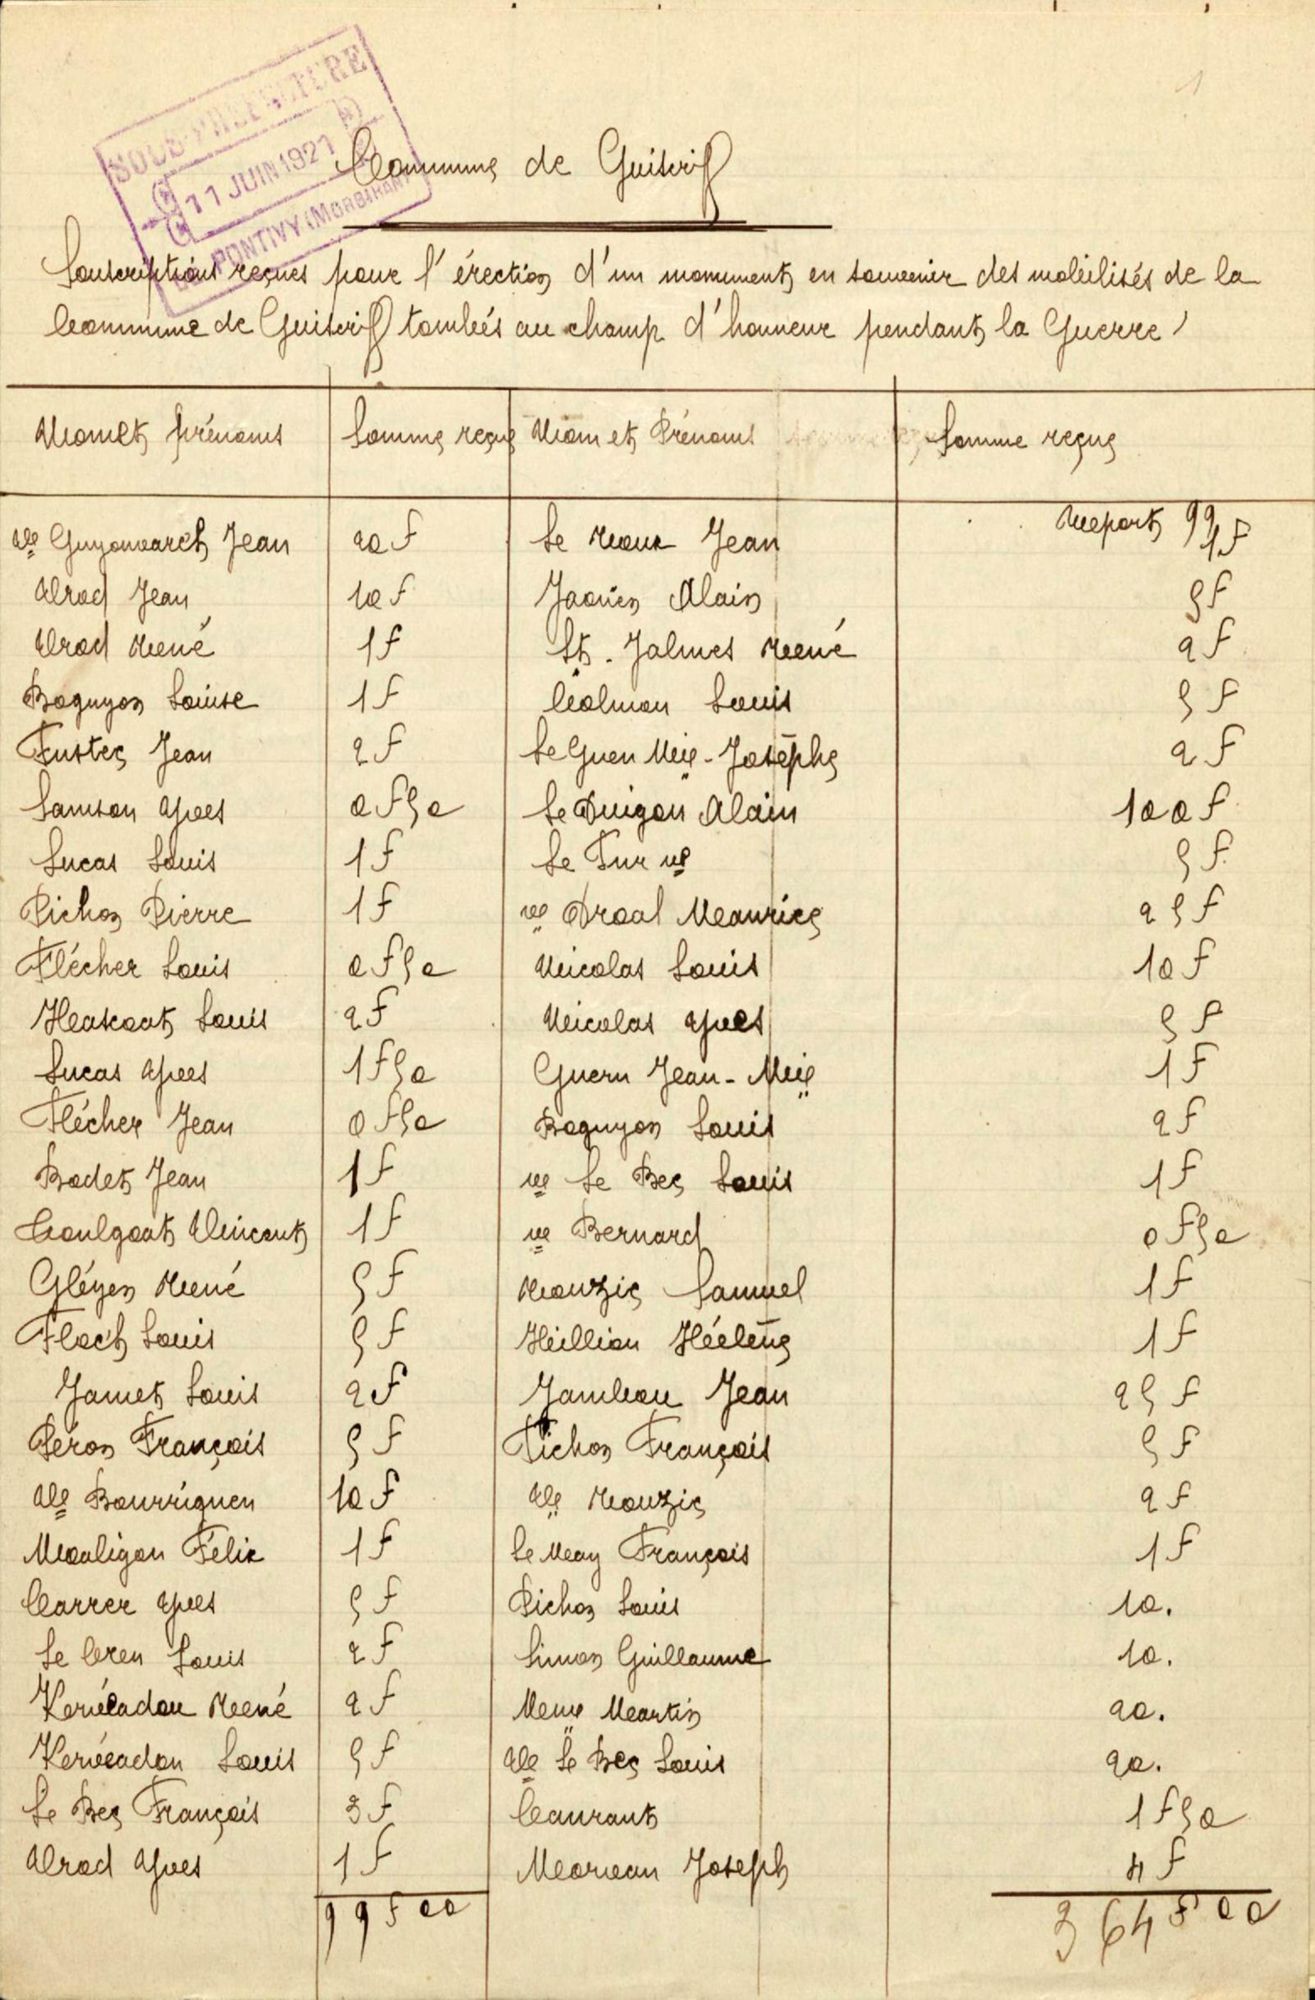 SOUS-PREFECTURE
11 JUIN 1921
PONTIVY (MORBIHAN)
1
Commune de Guiscriff
Souscriptions reçues pour l'érection d'un monument en souvenir des mobilisés de la
Commune de Guiscriff tombés au champ d'honneur pendant la Guerre
Nom et prénoms Somme reçue Nom et Prénoms Somme reçue
Report 99f
Vve Guyonvarch Jean 20f Le Roux Jean 1f
Urod Jean 10f Jaouen Alain 5f
Urod René 1f St. Jalmes René 2f
Boguyon Louise 1f Colman Louis 5f
Fustec Jean 2f Le Guen Mie-Josèphe 2f
Samson Yves 0f50 Le Duigou Alain 100f
Lucas Louis 1f Le Fur ve 5f
Pichon Pierre 1f ve Droal Maurice 25f
Flécher Louis 0f50 Nicolas Louis 10f
Hascoat Louis 2f Nicolas Yves 5f
Lucas Yves 1f50 Guern Jean-Mie 1f
Flécher Jean 0f50 Boguyon Louis 2f
Bodet Jean 1f ve Le Bec Louis 1f
Coulgoat Vincent 1f ve Bernard 0f50
Gléyen René 5f Rouzic Samuel 1f
Floc'h Louis 5f Hillion Héélène 1f
Jamet Louis 2f Jambou Jean 25f
Péron François 5f Pichon François 5f
Vve Bourriquen 10f Vve Rouzic 2f
Mouligou Félix 1f Le May François 1f
Carrer Yves 5f Pichon Louis 10.
Le Cren Louis 2f Simon Guillaume 10.
Kervéadou René 2f Meur Martin 20.
Kervéadou Louis 5f Vve Le Bec Louis 20.
Le Bec François 3f Caurant 1f50
Urod Yves 1f Morvan Joseph 4f
99f00 364f00